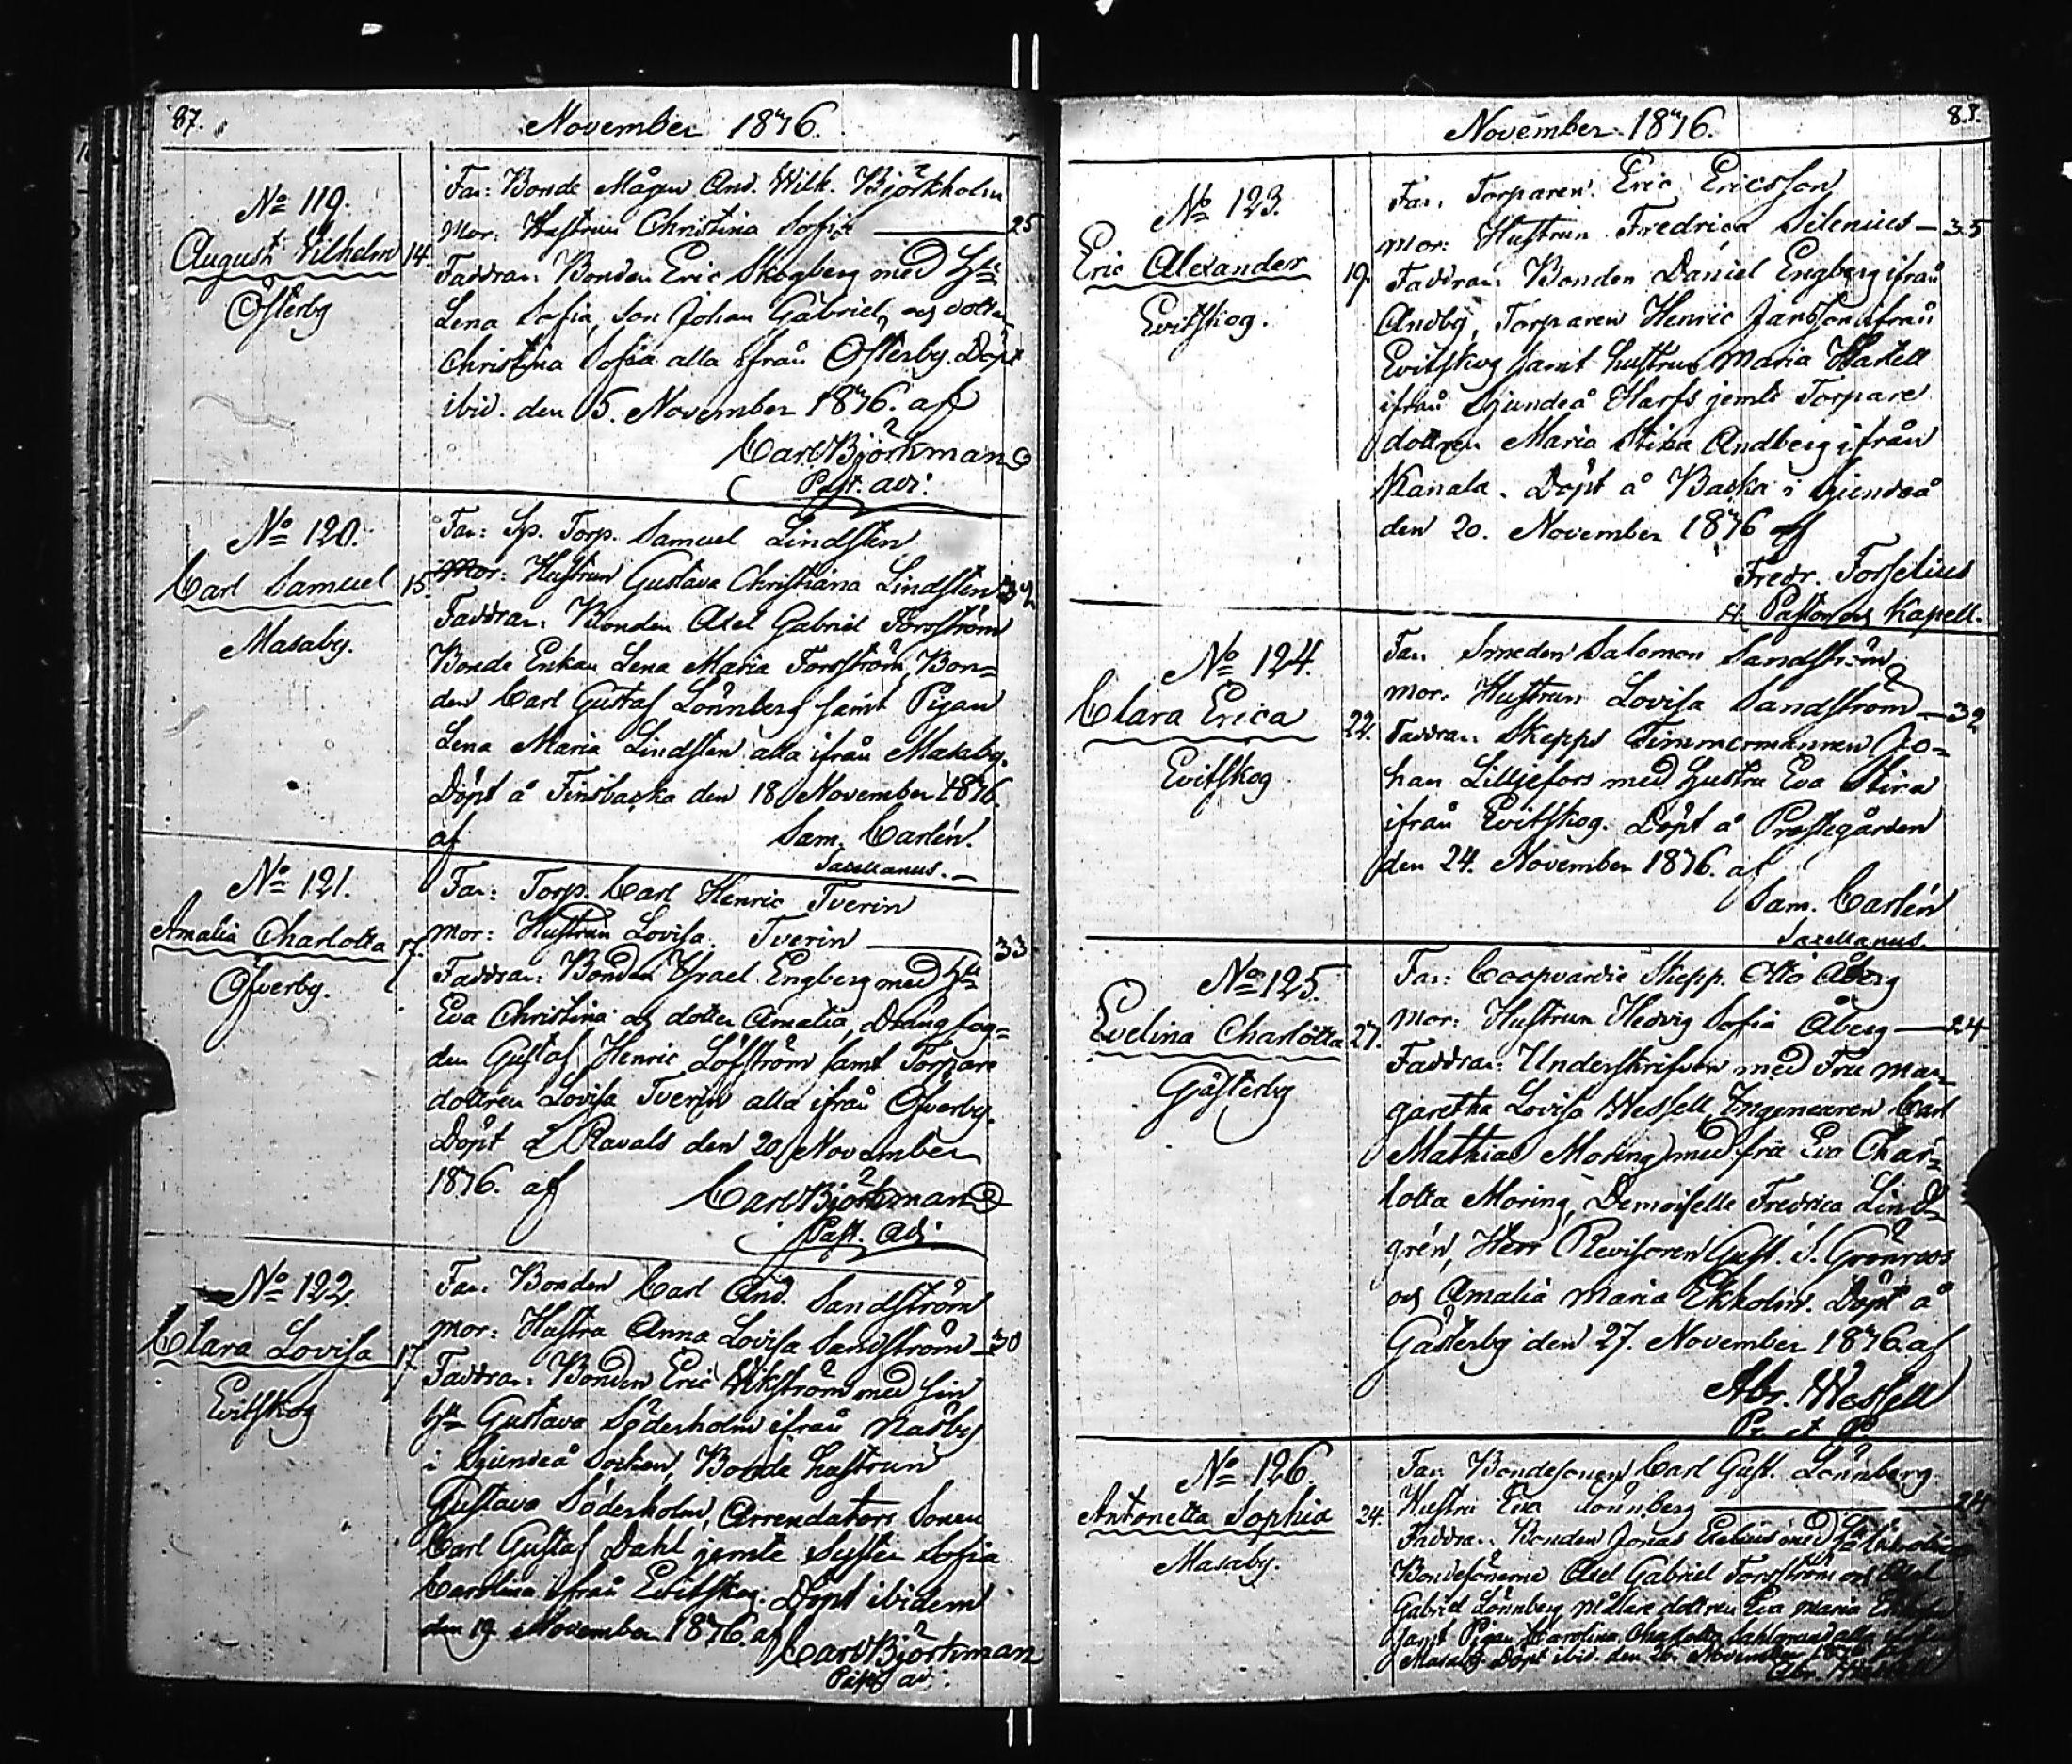 87.
November 1876.
No 119.
August Vilhelm 14.
Österby
Far: Bonde Mågen And. Wilh. Björkholm
Mor: Hustrun Christina Sofia — 25
Faddrar: Bonden Eric Skogberg med Hu
Lena Sofia, son Johan Gabriel, och dotter
Christina Sofia alla ifrån Österby. Döpt
ibid. den 15. November 1876. af
Carl Björkman
Past. adj.
No 120.
Carl Samuel 15.
Masaby.
Far: Sp. Torp. Samuel Lindsten
Mor: Hustrun Gustava Christiana Lindsten
Faddrar: Bonden Axel Gabriel Forsström
Bonde Enkan Lena Maria Forsström, Bon=
den Carl Gustaf Lönnberg samt Pigan
Lena Maria Lindsten alla ifrån Masaby.
Döpt å Finsbacka den 18 November 1876.
af Sam. Carlén.
Sacellanus.
No 121.
Amalia Charlotta 17.
Öfverby.
Far: Torp. Carl Henric Tverin
Mor: Hustrun Lovisa Tverin — 33
Faddrar: Bonden Israel Engberg med Hu
Eva Christina och dotter Amalia, Dräng
den Gustaf Henric Löfström samt Torpare
dottren Lovisa Tverin alla ifrån Öfverby.
Döpt å Ravals den 20 November
1876. af Carl Björkman
Past. Adj.
No 122.
Clara Lovisa 17
Evitskog
Far: Bonden Carl And. Sandström
Mor: Hustru Anna Lovisa Sandström — 30
Faddrar: Bonden Eric Wikström med sin
Gustava Söderholm ifrån Näsby
i Sjundeå Socken, Bonde hustrun
Gustava Söderholm, Arrendators Sonen
Carl Gustaf Dahl jemte Syster Sofia
Carolina ifrån Evitskog. Döpt ibidem
den 19 November 1876. af
Carl Björkman
Past. adj.
November 1876.
No 123.
Eric Alexander 19.
Evitskog.
Far: Torparen Eric Ericsson
Mor: Hustrun Fredrica Silenius — 35
Faddrar: Bonden Daniel Engberg ifrån
Andby, Torparen Henric Jansson ifrån
Evitskog samt hustrun Maria
ifrån Sjundeå Harfs jemte Torpare
dottren Maria Stina Andberg ifrån
Kanala. Döpt å Backa i Sjundeå
den 20. November 1876 af
Fredr. Forselius
Pastor och Kapell.
No 124.
Clara Erica 22.
Evitskog
Far: Smeden Salomon Sandström
Mor: Hustrun Lovisa Sandström — 32
Faddrar: Skepps Timmermannen Jo=
han Lilljefors med hustru Eva Stina
ifrån Evitskog. Döpt å Prestgården
den 24. November 1876. af
Sam. Carlén
Sacellanus.
No 125.
Evelina Charlotta 27.
Gästerby
Far: Coopvardie Skepp. Otto Åberg
Mor: Hustrun Hedvig Sofia Åberg — 24
Faddrar: Underskrifven med Fru Mar=
garetha Lovisa Wessell, Ingenieuren Carl
Mathias Moring med fru Eva Char=
lotta Moring, Demoiselle Fredrica Lind=
grén, Herr Revisoren Gust. S. Grönroos
och Amalia Maria Ekholm. Döpt å
Gästerby den 27. November 1876. af
Abr. Wessell
P. et P.
No 126.
Antonetta Sophia 24.
Masaby.
Far: Bondesonen Carl Gust. Lönnberg
Hustru Eva Lönnberg — 24
Faddrar: Bonden Jonas med
Bondesönerne Axel Gabriel Forsström och
Gabriel Lönnberg dottren Eva Maria
samt Pigan Carolina Charlotta alla
Masaby Döpt ibid. den 26. November